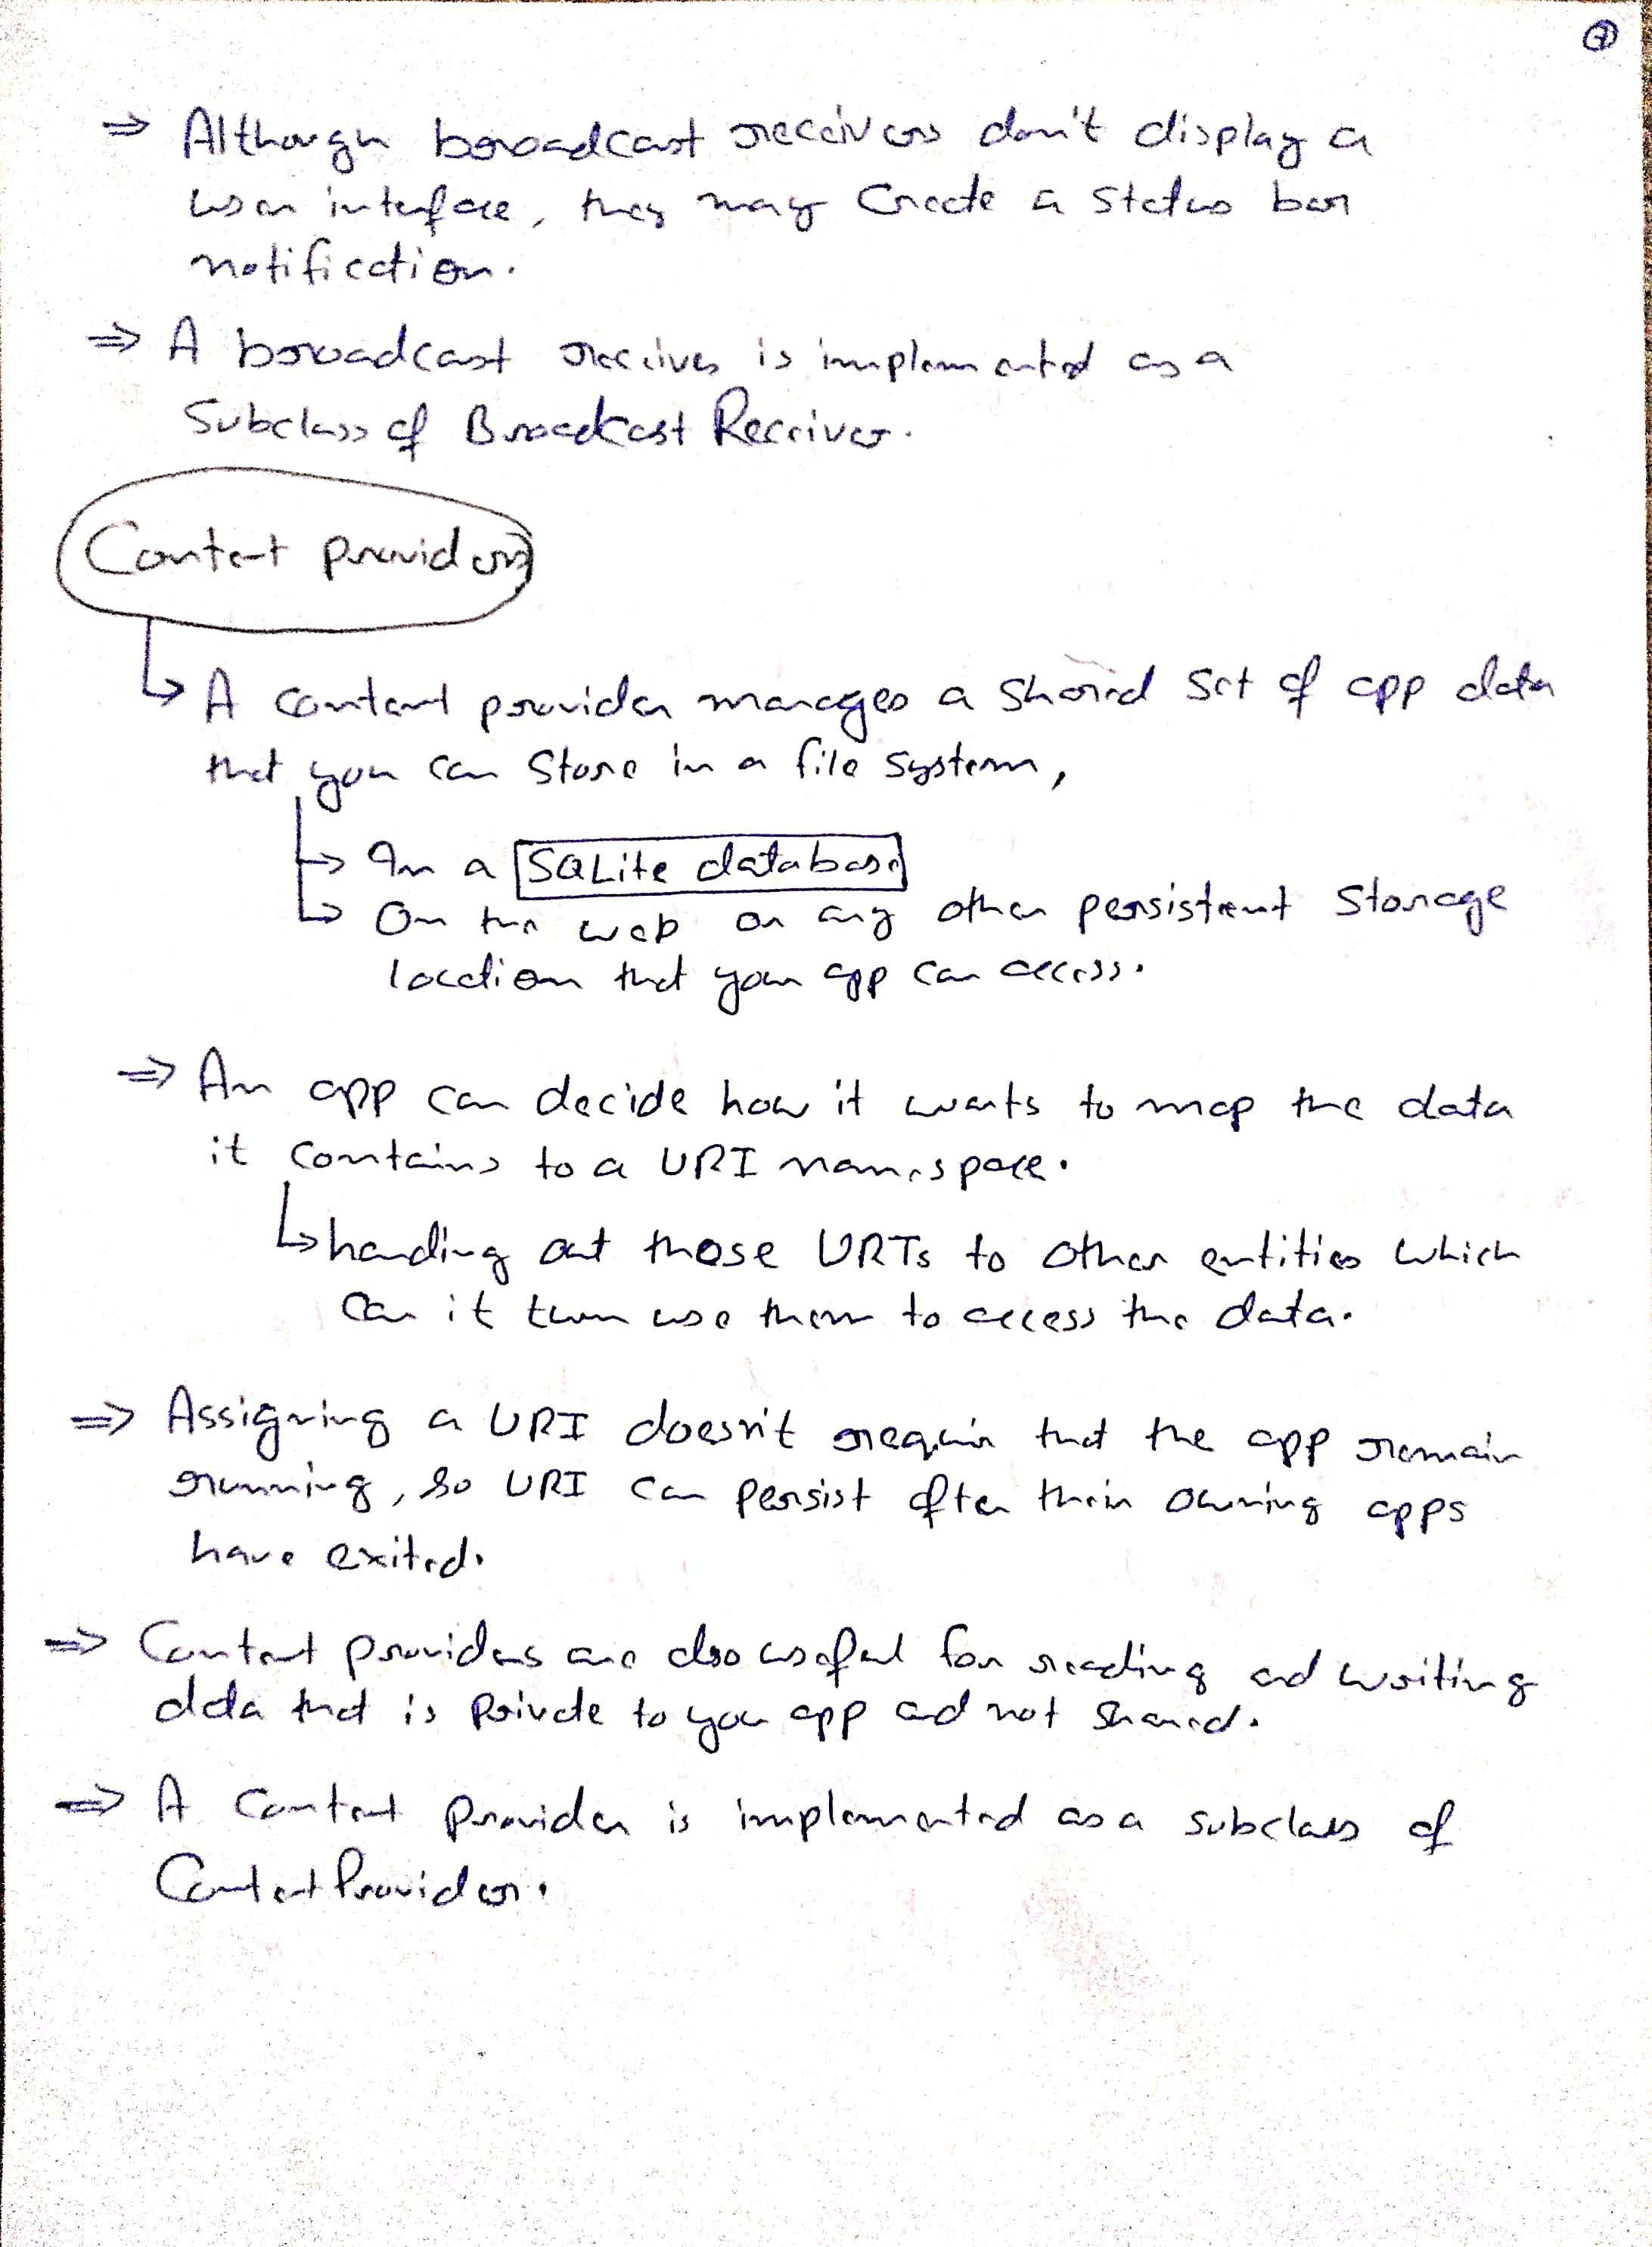 ⇒ Although broadcast receivers don't display a
user interface, they may Create a status bar
notification.
⇒ A broadcast receiver is implemented as a
Subclass of Broadcast Receiver.
Content providers
↳ A content provider manages a shared set of app data
that you can store in a file system,
↳ In a SQLite database
↳ On the web or any other persistent storage
location that your app can access.
⇒ An app can decide how it wants to map the data
it contains to a URI namespace.
↳ handing out those URIs to other entities which
can it turn use them to access the data.
⇒ Assigning a URI doesn't require that the app remain
running, so URI can persist after their owning apps
have exited.
⇒ Content providers are also useful for reading and writing
data that is private to you app and not shared.
⇒ A Content provider is implemented as a subclass of
ContentProvider.